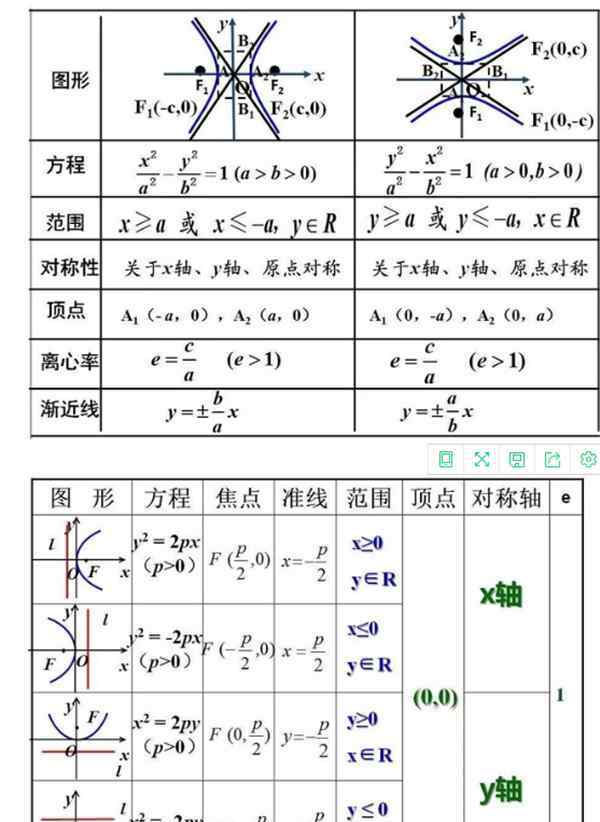 图形
y
x
B₂
A₁
A₂
O
B₁
F₁
F₂
F₁(-c,0)
F₂(c,0)
y
F₂
A₂
B₂
B₁
O
A₁
x
F₁
F₂(0,c)
F₁(0,-c)
方程
x²/a² - y²/b² = 1 (a > b > 0)
y²/a² - x²/b² = 1 (a > 0, b > 0)
范围
x ≥ a 或 x ≤ -a, y ∈ R
y ≥ a 或 y ≤ -a, x ∈ R
对称性
关于x轴、y轴、原点对称
关于x轴、y轴、原点对称
顶点
A₁（- a，0），A₂（a，0）
A₁（0，-a），A₂（0，a）
离心率
e = c/a (e > 1)
e = c/a (e > 1)
渐近线
y = ± b/a x
y = ± a/b x
图 形 方程 焦点 准线 范围 顶点 对称轴 e
y
l
O F x
y² = 2px
（p>0）
F (p/2,0)
x = -p/2
x≥0
y∈R
x轴
y
l
F O x
y² = -2px
（p>0）
F (-p/2,0)
x = p/2
x≤0
y∈R
(0,0)
1
y
F
O x
l
x² = 2py
（p>0）
F (0,p/2)
y = -p/2
y≥0
x∈R
y轴
y
l
p
p
y ≤ 0